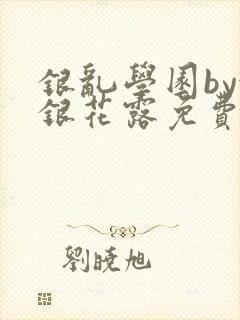 銀亂學園by
銀花露免費
劉曉旭